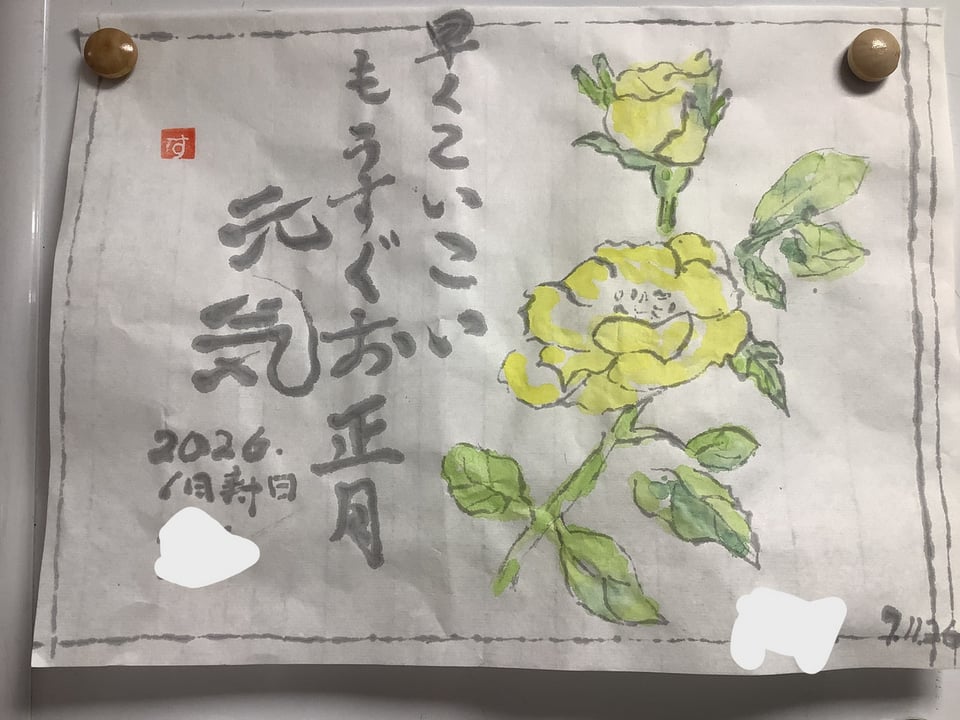 早くこいこい
もうすぐお正月
元気
す
2026.
1月寿日
7.11.26